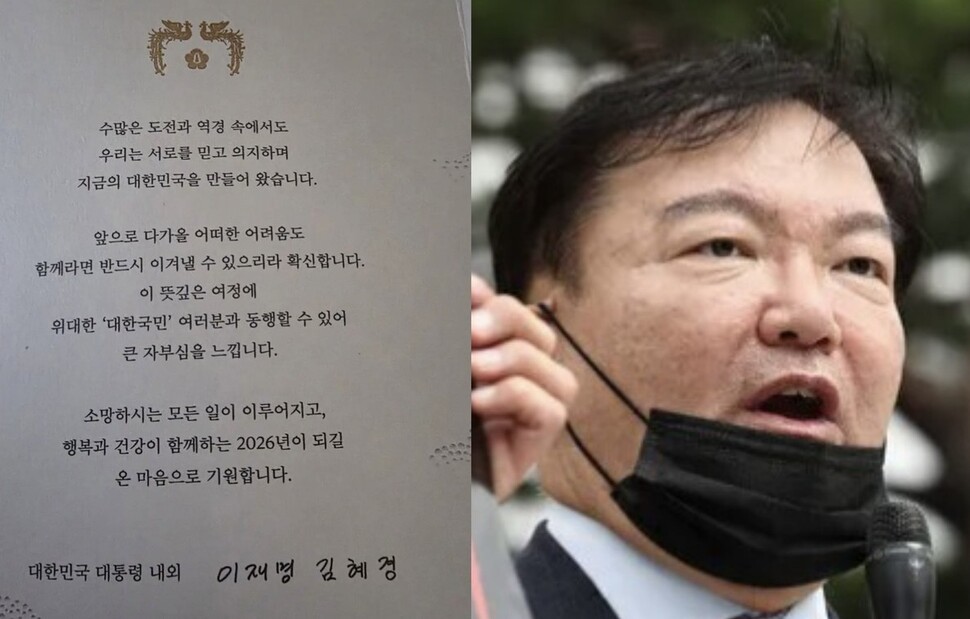 수많은 도전과 역경 속에서도
우리는 서로를 믿고 의지하며
지금의 대한민국을 만들어 왔습니다.
앞으로 다가올 어떠한 어려움도
함께라면 반드시 이겨낼 수 있으리라 확신합니다.
이 뜻깊은 여정에
위대한 ‘대한국민’ 여러분과 동행할 수 있어
큰 자부심을 느낍니다.
소망하시는 모든 일이 이루어지고,
행복과 건강이 함께하는 2026년이 되길
온 마음으로 기원합니다.
대한민국 대통령 내외 이재명 김혜경